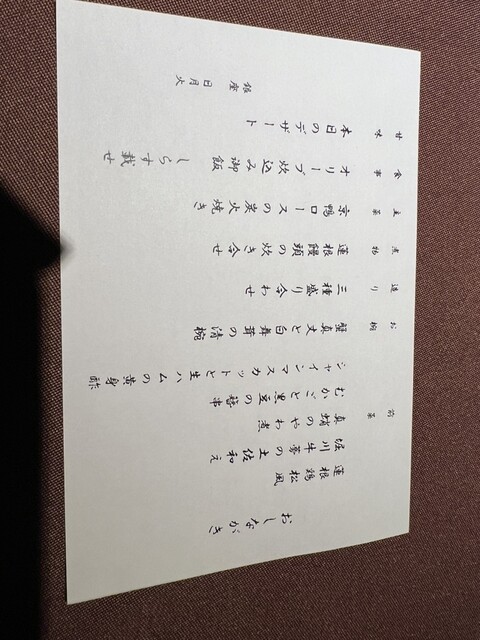 おしながき
前菜
蓮根鶏松風
堀川牛蒡の土佐和え
真蛸のやわ煮
むかごと黒豆の簪串
シャインマスカットと生ハムの黄身酢
お椀
蟹真丈と白舞茸の清椀
造り
三種盛り合わせ
煮物
蓮根饅頭の炊き合せ
主菜
京鴨ロースの炭火焼き
食事
オリーブ炊込み御飯 しらす載せ
甘味
本日のデザート
銀座 日月火